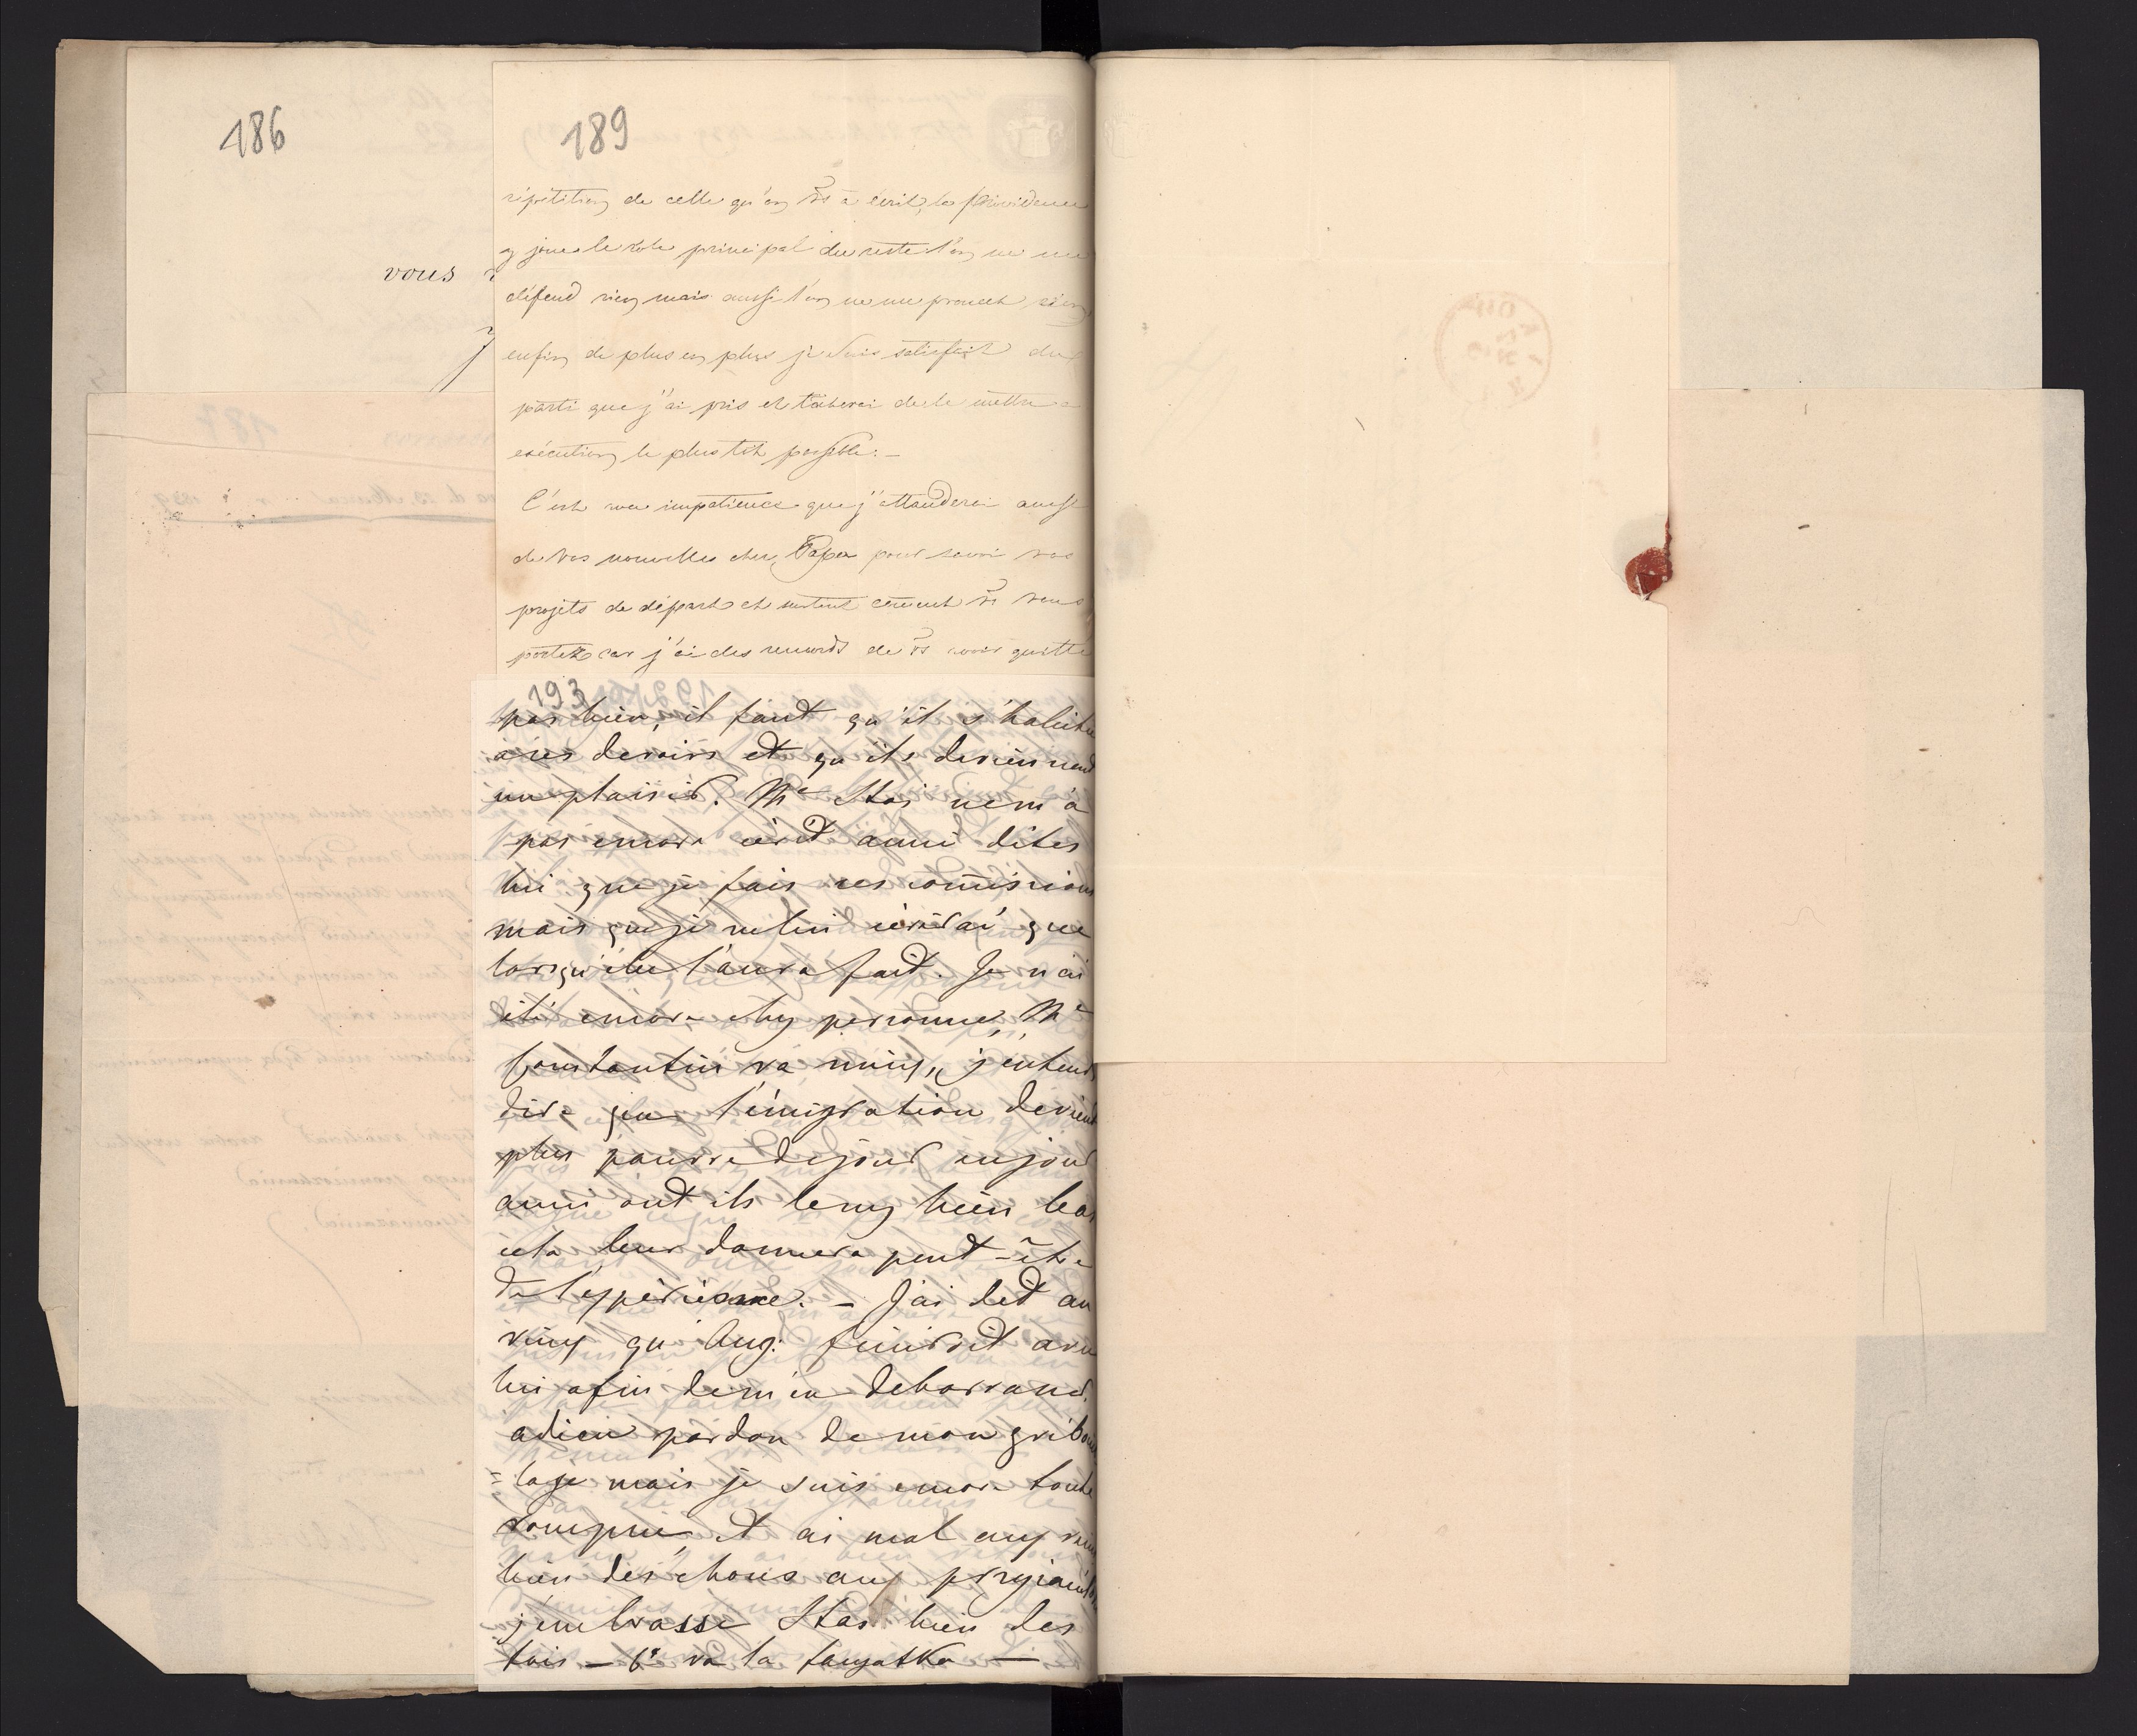 186
vous
189
répétition de celle qu'on vs a écrit, la providence
y joue le role principal du reste l'on ne me
défend rien mais aussi l'on ne me promet rien
enfin de plus en plus je suis satisfait du
parti que j'ai pris et tâcherai de le mettre a
exécution le plus tôt possible. –
C'est avec impatience que j'attenderai aussi
de vos nouvelles cher Papa pour savoir vos
projets de départ et surtout coment vs vous
portez car j'ai des remords de vs avoir quitté
193
pas bien, il faut qu'il s'habitue
à ses devoirs et qu'ils deviennent
un plaisir. Me Stas ne m'a
pas encore écrit aussi dites
lui que je fais ses comissions
mais que je ne lui écrirai que
lorsqu'elle l'aura fait. Je n'ai
été encore chez personne, Me
Constantin va mieux, j'entends
dire que l'émigration devient
plus pauvre de jour en jour
aussi ont ils le nez bien bas
cela leur donnera peut-être
de l'expérience. – J'ai dit au
vieux qu'Aug: finirait avec
lui afin de m'en debarrasser.
adieu pardon de mon gribouil
=lage mais je suis encore toute
rompue, et ai mal aux reins
bien des choses aux
j'embrasse Stas bien des
fois –